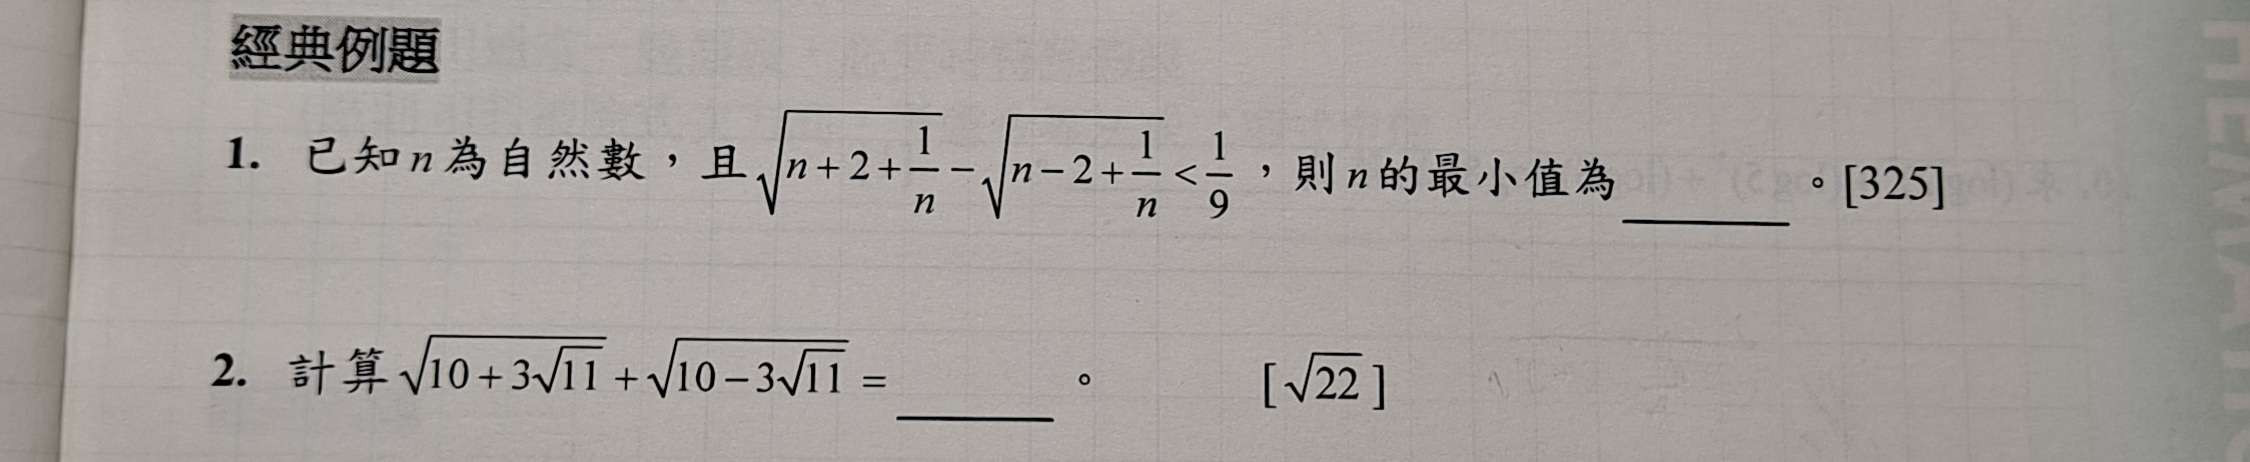 經典例題
1. 已知 n 為自然數，且 √(n+2+1/n) − √(n−2+1/n) < 1/9，則 n 的最小值為______。[325]
2. 計算 √(10+3√11) + √(10−3√11) = ______。 [√22]